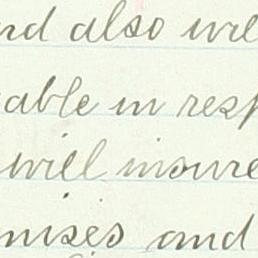 nd also wel
able in resp
will insure
mises and